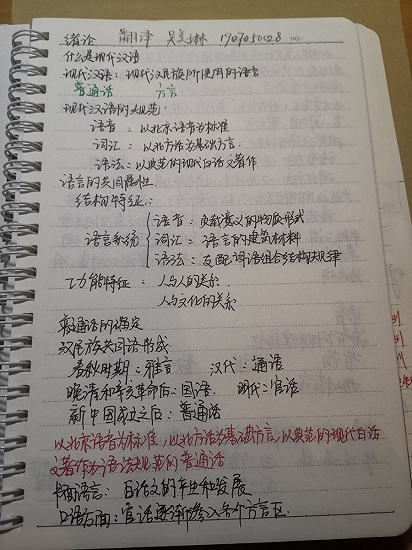 绪论 翻译 吴美琳 1907050028 NO.
什么是现代汉语
现代汉语：现代汉民族所使用的语言
普通话 方言
现代汉语的规范：
语音：以北京语音为标准
词汇：以北方话为基础方言.
语法：以典范的现代白话文著作
语言的共同属性.
结构特征：
语音：负载意义的物质形式
语言系统 词汇：语言的建筑材料
语法：支配词语组合结构规律
功能特征：人与人的关系.
人与文化的关系
普通话的确定
汉民族共同语形成
春秋时期：雅言 汉代：通语
晚清和辛亥革命后：国语. 明代：官话
新中国成立之后：普通话
以北京语音为标准，以北方话为基础方言，以典范的现代白话
文著作为语法规范的普通话
书面语言：白话文的产生和发展
口语方面：官话逐渐渗入各个方言区.